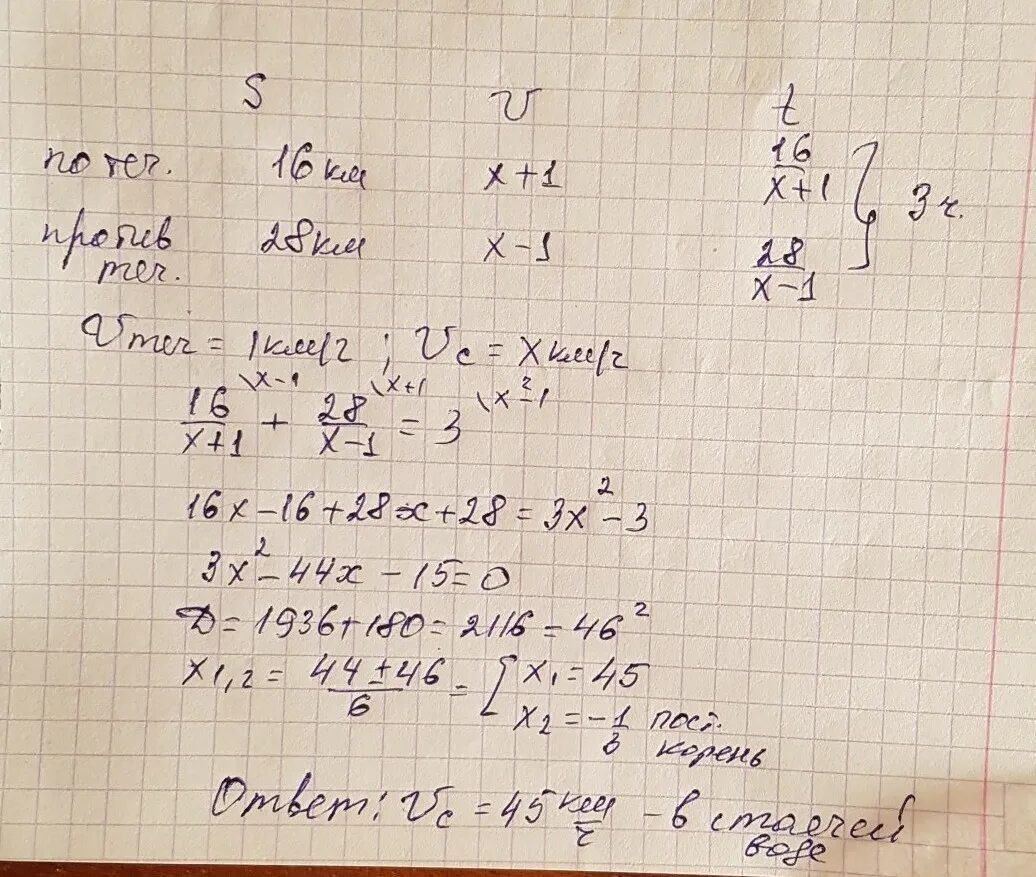 S V t
по теч. 16 км x+1 16/(x+1) } 3 ч.
против теч. 28 км x-1 28/(x-1)
Vтеч = 1 км/ч ; Vc = x км/ч
16/(x+1) \x-1 + 28/(x-1) \x+1 = 3 \x²-1
16x - 16 + 28x + 28 = 3x² - 3
3x² - 44x - 15 = 0
D = 1936 + 180 = 2116 = 46²
x1,2 = (44 ± 46)/6 = [ x1 = 45
x2 = -1/3 пост. корень
Ответ: Vc = 45 км/ч - в стоячей воде